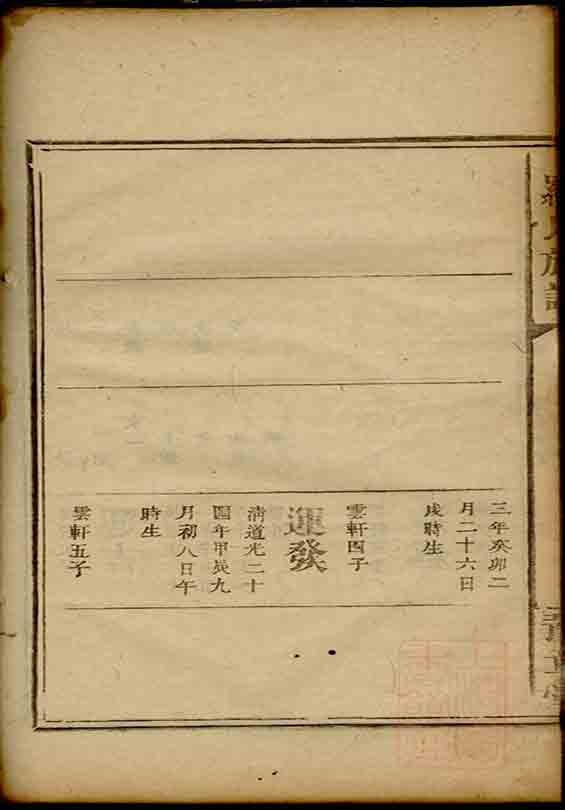 三年癸卯二
月二十六日
戌時生
雲軒四子
運發
清道光二十
四年甲辰九
月初八日午
時生
雲軒五子